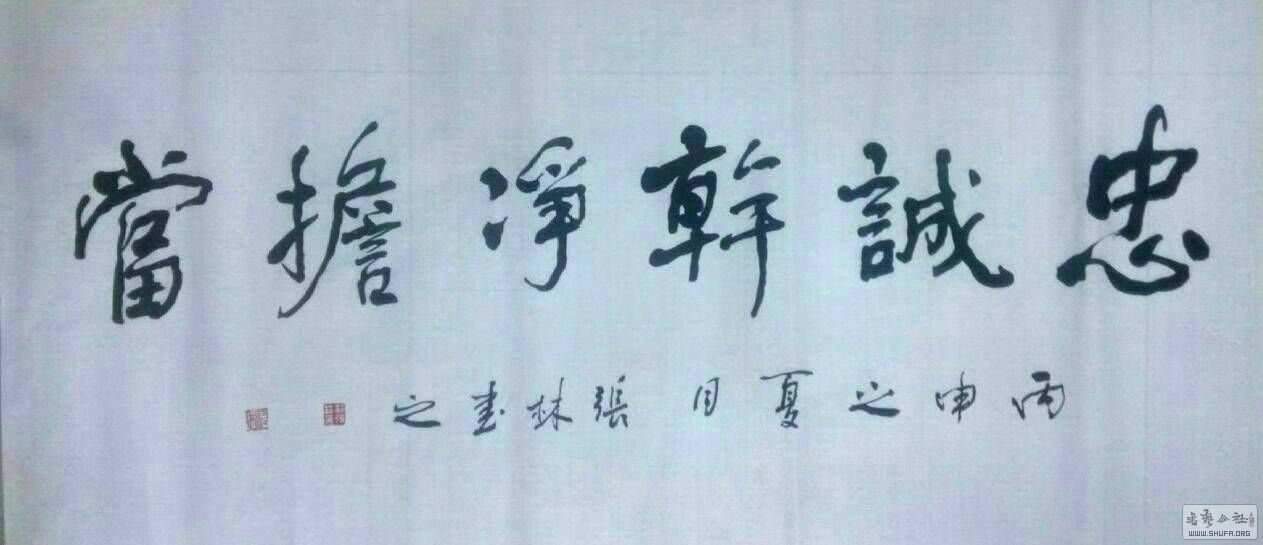 忠誠幹淨擔當
丙申之夏月張林書之
書藝公社
WWW.SHUFA.ORG